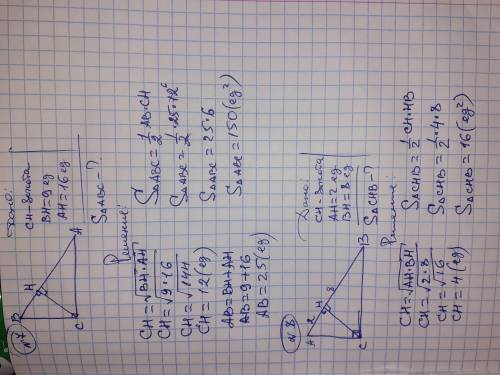 №7
B
H
C
A
Дано:
CH-высота
BH=9 eg
AH=16 eg
S△ABC-?
Решение:
CH=√BH·AH
CH=√9·16
CH=√144
CH=12(eg)
AB=BH+AH
AB=9+16
AB=25(eg)
S△ABC=1/2 AB·CH
S△ABC=1/2·25·12 6
S△ABC=25·6
S△ABC=150(eg²)
№8
A
2
H
8
C
B
Дано:
CH-высота
AH=2 eg
BH=8 eg
S△CHB-?
Решение:
CH=√AH·BH
CH=√2·8
CH=√16
CH=4(eg)
S△CHB=1/2 CH·HB
S△CHB=1/2·4·8
S△CHB=16(eg²)